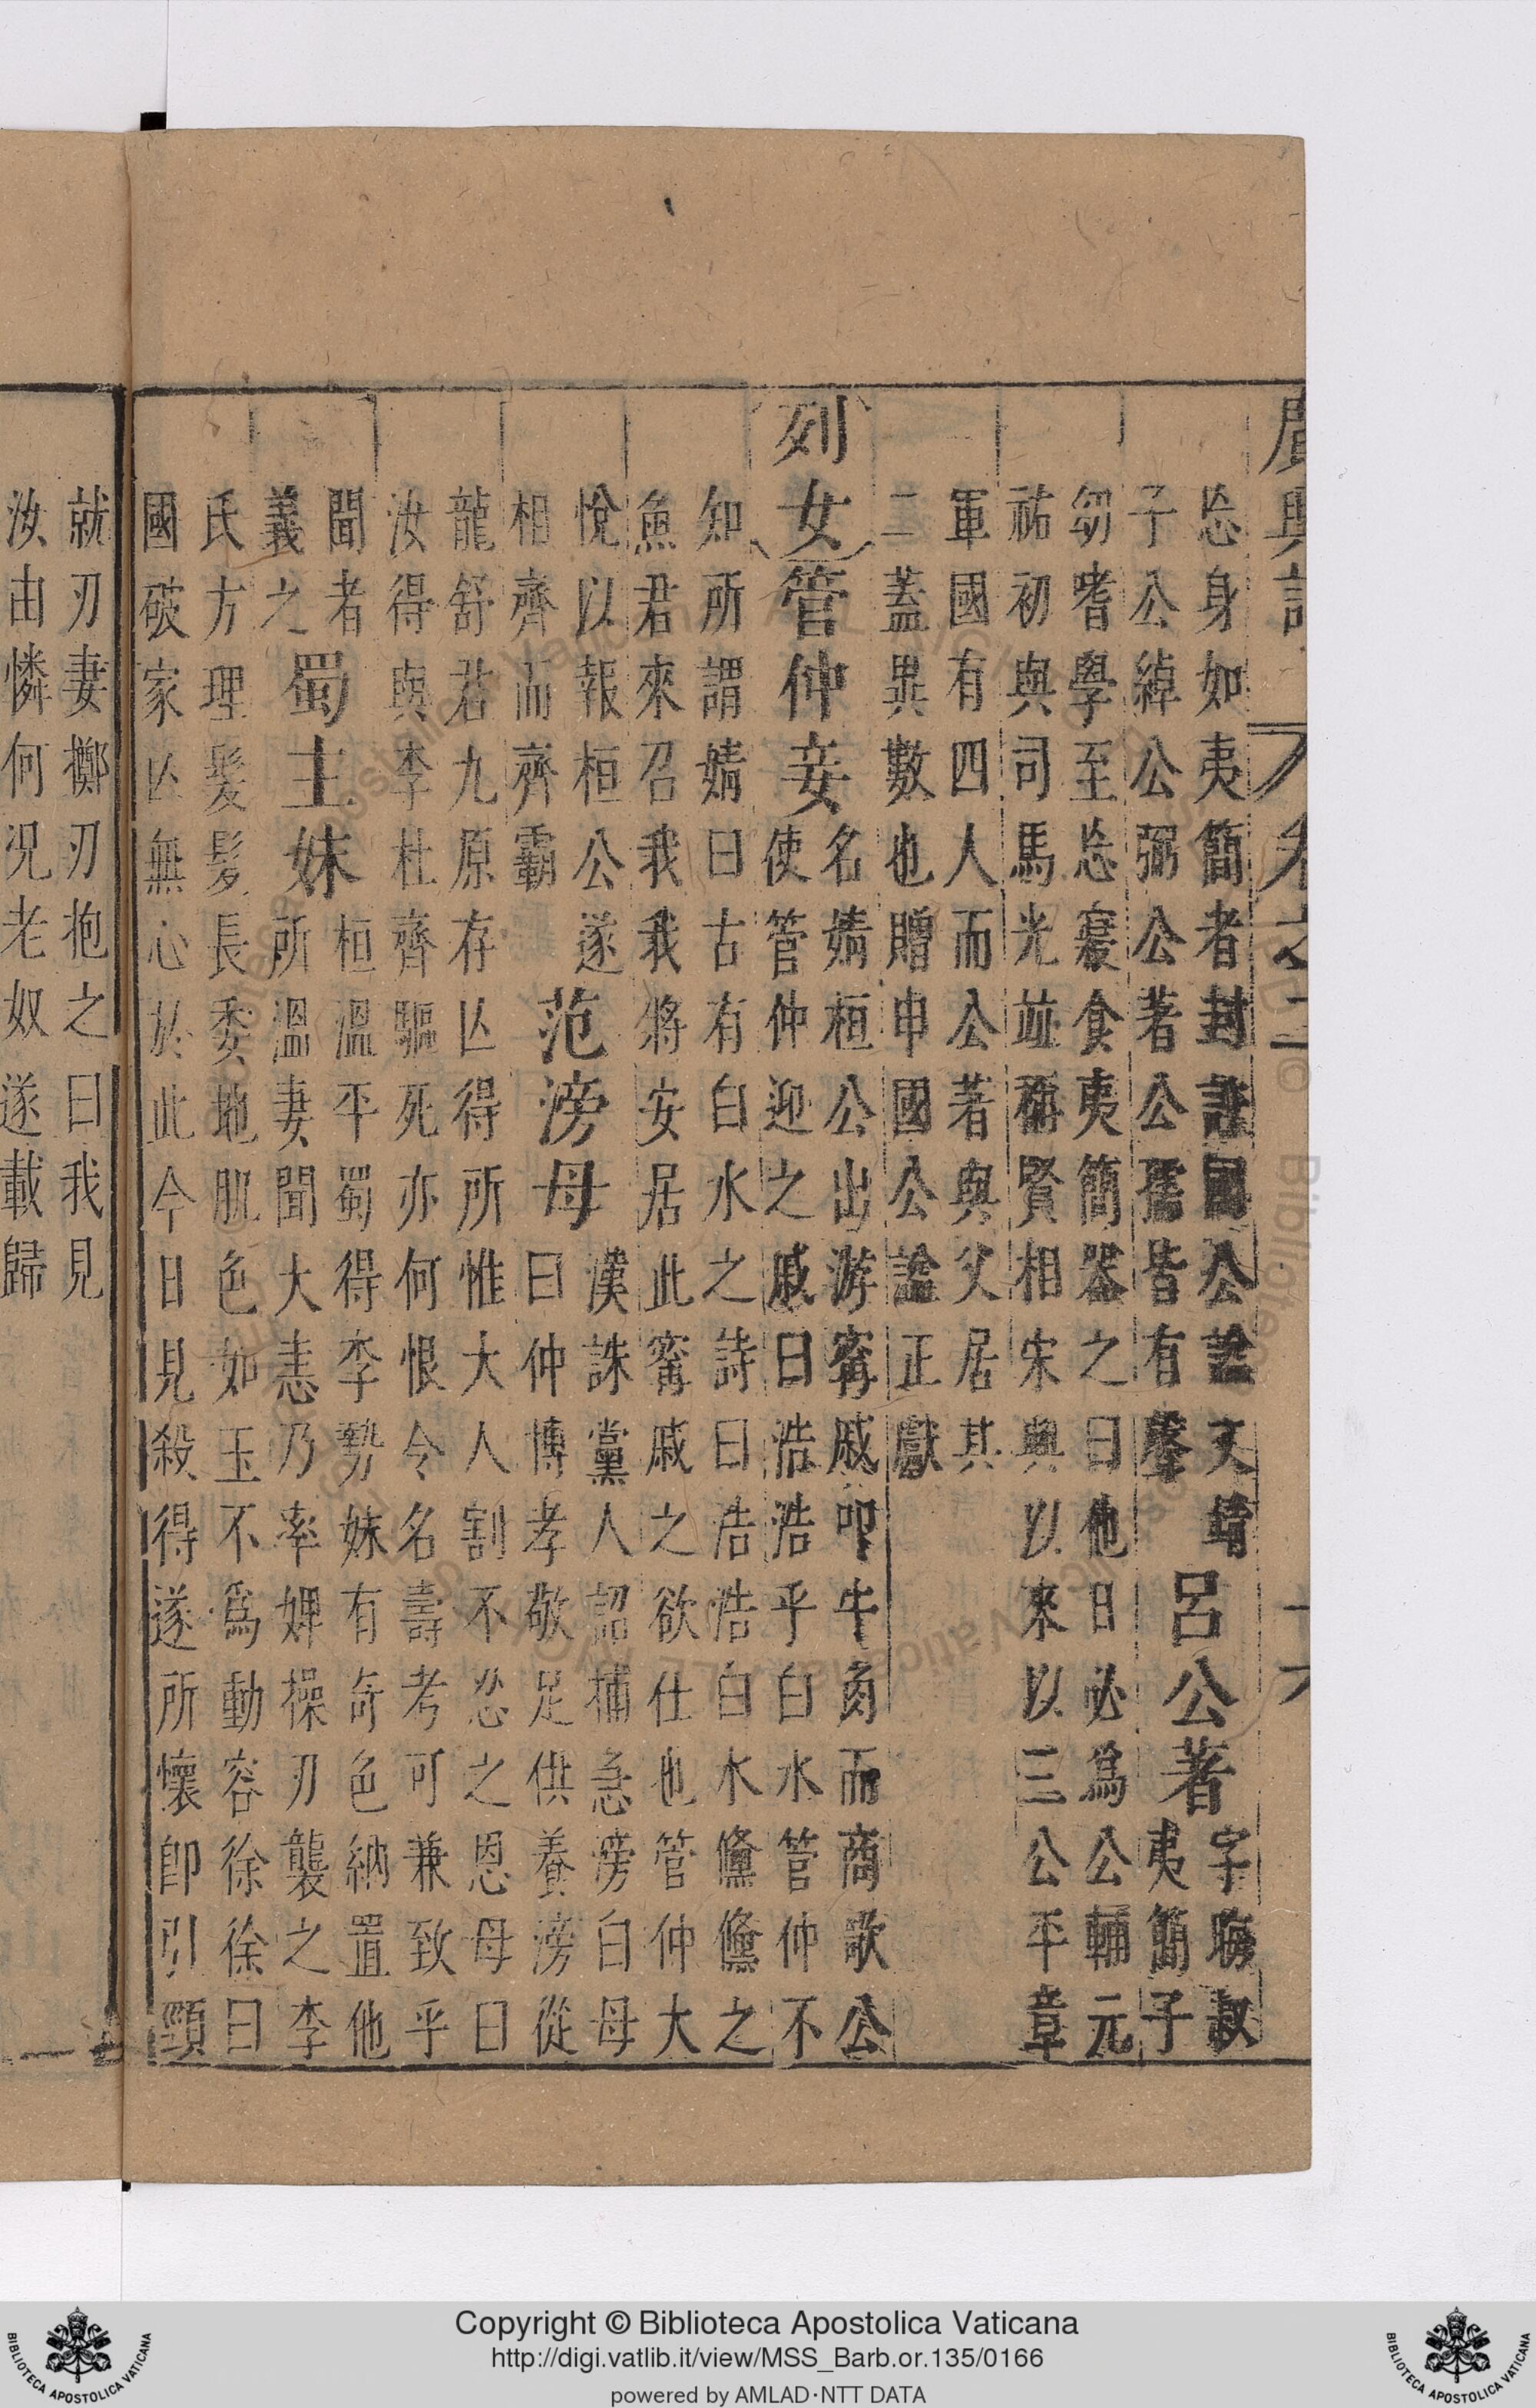 廣輿記 卷之二 十六
忘身如夷簡者封許國公諡文靖
子公綽公弼公著公孺皆有聲
呂公著
字晦叔
夷簡子
幼嗜學至忘寢食夷簡器之曰他日必爲公輔元
祐初與司馬光並稱賢相宋興以來以三公平章
軍國有四人而公著與父居其
二蓋異數也贈申國公諡正獻
列女
管仲妾
名婧桓公出游甯戚叩牛角而商歌公
使管仲迎之戚曰浩浩乎白水管仲不
知所謂婧曰古有白水之詩曰浩浩白水儵儵之
魚君來召我我將安居此甯戚之欲仕也管仲大
悅以報桓公遂
相齊而齊霸
范滂母
漢誅黨人詔捕急滂白母
曰仲博孝敬足供養滂從
龍舒君九原存亾得所惟大人割不忍之恩母曰
汝得與李杜齊驅死亦何恨令名壽考可兼致乎
聞者
義之
蜀主妹
桓溫平蜀得李勢妹有奇色納置他
所溫妻聞大恚乃率婢操刃襲之李
氏方理髮髮長委地肌色如玉不爲動容徐徐曰
國破家亾無心於此今日見殺得遂所懷卽引頸
就刃妻擲刃抱之曰我見
汝由憐何况老奴遂載歸
Copyright © Biblioteca Apostolica Vaticana
http://digi.vatlib.it/view/MSS_Barb.or.135/0166
powered by AMLAD·NTT DATA
BIBLIOTECA APOSTOLICA VATICANA
BIBLIOTECA APOSTOLICA VATICANA